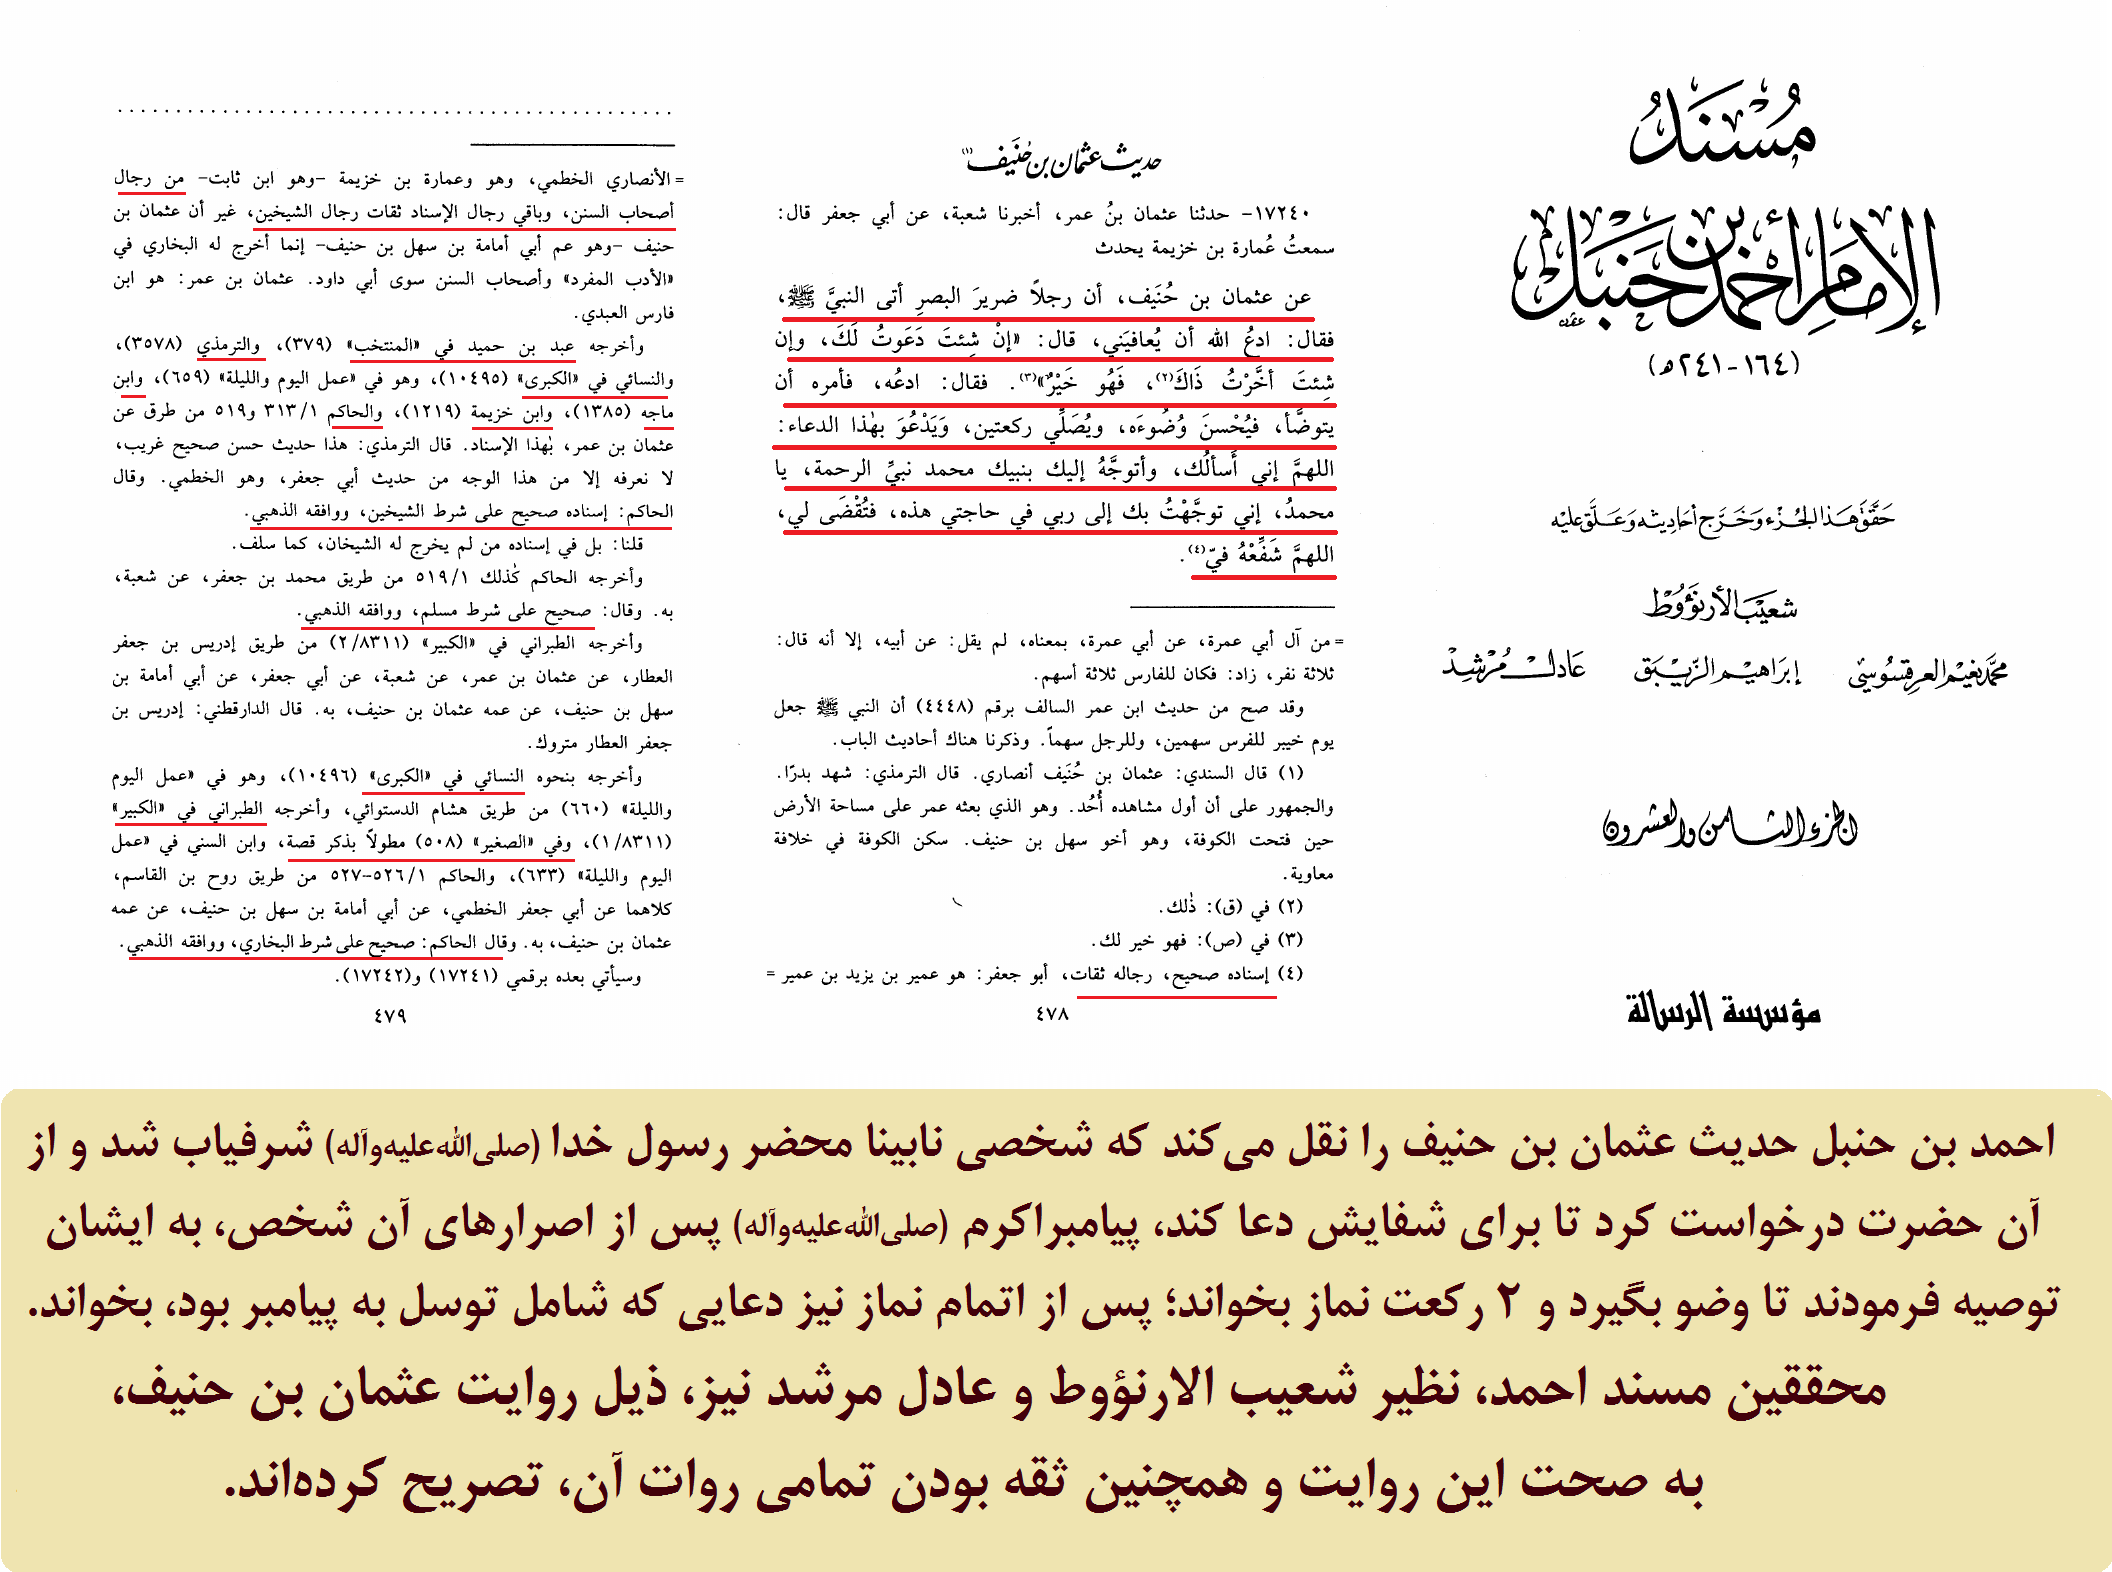 مُسْنَدُ
الإمَامِ أحْمَد بْن حَنبَل
(١٦٤-٢٤١ه)
حَقَّقَ هَذا الجُزْء وَخَرَّجَ أحَاديثه وَعَلَّق عَليْه
شعيَب الأرنؤوُط
محمَّد نعيْم العرقسُوسيّ إبرَاهيْم الزّيبَق عَادل مُرْشِد
الجزء الثامن والعشرون
مؤسسة الرسالة
حديث عثمان بن حُنَيف(١)
١٧٢٤٠- حدثنا عثمان بنُ عمر، أخبرنا شعبة، عن أبي جعفر قال:
سمعتُ عُمارة بن خزيمة يحدث
عن عثمان بن حُنَيف، أن رجلاً ضريرَ البصرِ أتى النبيَّ ﷺ،
فقال: ادعُ الله أن يُعافيَني، قال: «إنْ شِئتَ دَعَوتُ لَكَ، وإن
شِئتَ أخَّرْتُ ذَاكَ(٢)، فَهُو خَيْرٌ»(٣). فقال: ادعُه، فأمره أن
يتوضَّأ، فيُحْسنَ وُضُوءَه، ويُصَلِّي ركعتين، وَيَدْعُوَ بهٰذا الدعاء:
اللهمَّ إني أسألُك، وأتوجَّهُ إليك بنبيك محمد نبيِّ الرحمة، يا
محمدُ، إني توجَّهْتُ بك إلى ربي في حاجتي هذه، فتُقْضَى لي،
اللهمَّ شَفِّعْهُ فيّ(٤).
= من آل أبي عمرة، عن أبي عمرة، بمعناه، لم يقل: عن أبيه، إلا أنه قال:
ثلاثة نفر، زاد: فكان للفارس ثلاثة أسهم.
وقد صح من حديث ابن عمر السالف برقم (٤٤٤٨) أن النبي ﷺ جعل
يوم خيبر للفرس سهمين، وللرجل سهماً. وذكرنا هناك أحاديث الباب.
(١) قال السندي: عثمان بن حُنَيف أنصاري. قال الترمذي: شهد بدرًا.
والجمهور على أن أول مشاهده أُحُد. وهو الذي بعثه عمر على مساحة الأرض
حين فتحت الكوفة، وهو أخو سهل بن حنيف. سكن الكوفة في خلافة
معاوية.
(٢) في (ق): ذٰلك.
(٣) في (ص): فهو خير لك.
(٤) إسناده صحيح، رجاله ثقات، أبو جعفر: هو عمير بن يزيد بن عمير =
٤٧٨
= الأنصاري الخطمي، وهو وعمارة بن خزيمة -وهو ابن ثابت- من رجال
أصحاب السنن، وباقي رجال الإسناد ثقات رجال الشيخين، غير أن عثمان بن
حنيف -وهو عم أبي أمامة بن سهل بن حنيف- إنما أخرج له البخاري في
«الأدب المفرد» وأصحاب السنن سوى أبي داود. عثمان بن عمر: هو ابن
فارس العبدي.
وأخرجه عبد بن حميد في «المنتخب» (٣٧٩)، والترمذي (٣٥٧٨)،
والنسائي في «الكبرى» (١٠٤٩٥)، وهو في «عمل اليوم والليلة» (٦٥٩)، وابن
ماجه (١٣٨٥)، وابن خزيمة (١٢١٩)، والحاكم ٣١٣/١ و٥١٩ من طرق عن
عثمان بن عمر، بهٰذا الإسناد. قال الترمذي: هذا حديث حسن صحيح غريب،
لا نعرفه إلا من هذا الوجه من حديث أبي جعفر، وهو الخطمي. وقال
الحاكم: إسناده صحيح على شرط الشيخين، ووافقه الذهبي.
قلنا: بل في إسناده من لم يخرج له الشيخان، كما سلف.
وأخرجه الحاكم كذٰلك ٥١٩/١ من طريق محمد بن جعفر، عن شعبة،
به. وقال: صحيح على شرط مسلم، ووافقه الذهبي.
وأخرجه الطبراني في «الكبير» (٢/٨٣١١) من طريق إدريس بن جعفر
العطار، عن عثمان بن عمر، عن شعبة، عن أبي جعفر، عن أبي أمامة بن
سهل بن حنيف، عن عمه عثمان بن حنيف، به. قال الدارقطني: إدريس بن
جعفر العطار متروك.
وأخرجه بنحوه النسائي في «الكبرى» (١٠٤٩٦)، وهو في «عمل اليوم
والليلة» (٦٦٠) من طريق هشام الدستوائي، وأخرجه الطبراني في «الكبير»
(١/٨٣١١)، وفي «الصغير» (٥٠٨) مطولاً بذكر قصة، وابن السني في «عمل
اليوم والليلة» (٦٣٣)، والحاكم ٥٢٦/١-٥٢٧ من طريق روح بن القاسم،
كلاهما عن أبي جعفر الخطمي، عن أبي أمامة بن سهل بن حنيف، عن عمه
عثمان بن حنيف، به. وقال الحاكم: صحيح على شرط البخاري، ووافقه الذهبي.
وسيأتي بعده برقمي (١٧٢٤١) و(١٧٢٤٢).
٤٧٩
احمد بن حنبل حدیث عثمان بن حنیف را نقل می‌کند که شخصی نابینا محضر رسول خدا (صلی‌الله‌علیه‌وآله) شرفیاب شد و از
آن حضرت درخواست کرد تا برای شفایش دعا کند، پیامبراکرم (صلی‌الله‌علیه‌وآله) پس از اصرارهای آن شخص، به ایشان
توصیه فرمودند تا وضو بگیرد و ۲ رکعت نماز بخواند؛ پس از اتمام نماز نیز دعایی که شامل توسل به پیامبر بود، بخواند.
محققین مسند احمد، نظیر شعیب الارنؤوط و عادل مرشد نیز، ذیل روایت عثمان بن حنیف،
به صحت این روایت و همچنین ثقه بودن تمامی روات آن، تصریح کرده‌اند.